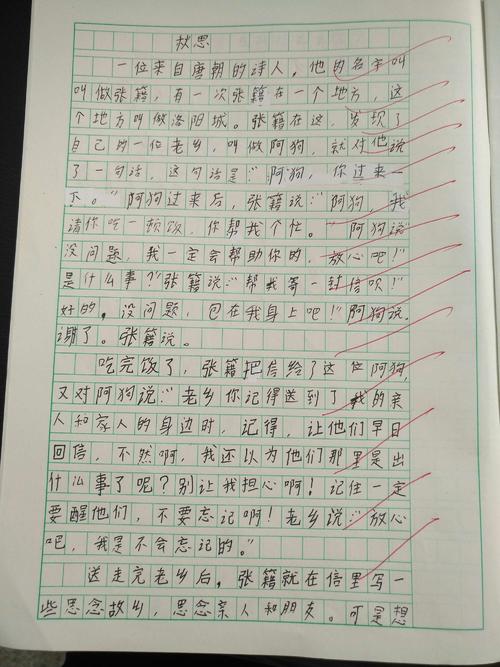 秋思
一位来自唐朝的诗人，他的名字叫
叫做张籍，有一次张籍在一个地方，这
个地方叫做洛阳城。张籍在这，发现了
自己的一位老乡，叫做阿狗，就对他说
了一句话，这句话是：“阿狗，你过来一
下。”阿狗过来后，张籍说：“阿狗，我
请你吃一顿饭，你帮我个忙。”“阿狗说”
没问题，我一定会帮助你的，放心吧！”
是什么事？”张籍说：“帮我寄一封信呗！”
好的，没问题，包在我身上吧！”阿狗说。
谢了。张籍说。
吃完饭了，张籍把信给了这位阿狗，
又对阿狗说：“老乡你记得送到了我的亲
人和家人的身边时，记得，让他们早日
回信，不然啊，我还以为他们那里是出
什么事了呢？别让我担心啊！记住一定
要醒他们，不要忘记啊！老乡说：“放心
吧，我是不会忘记的。”
送走完老乡后。张籍就在信里写一
些思念故乡，思念亲人和朋友。可是想